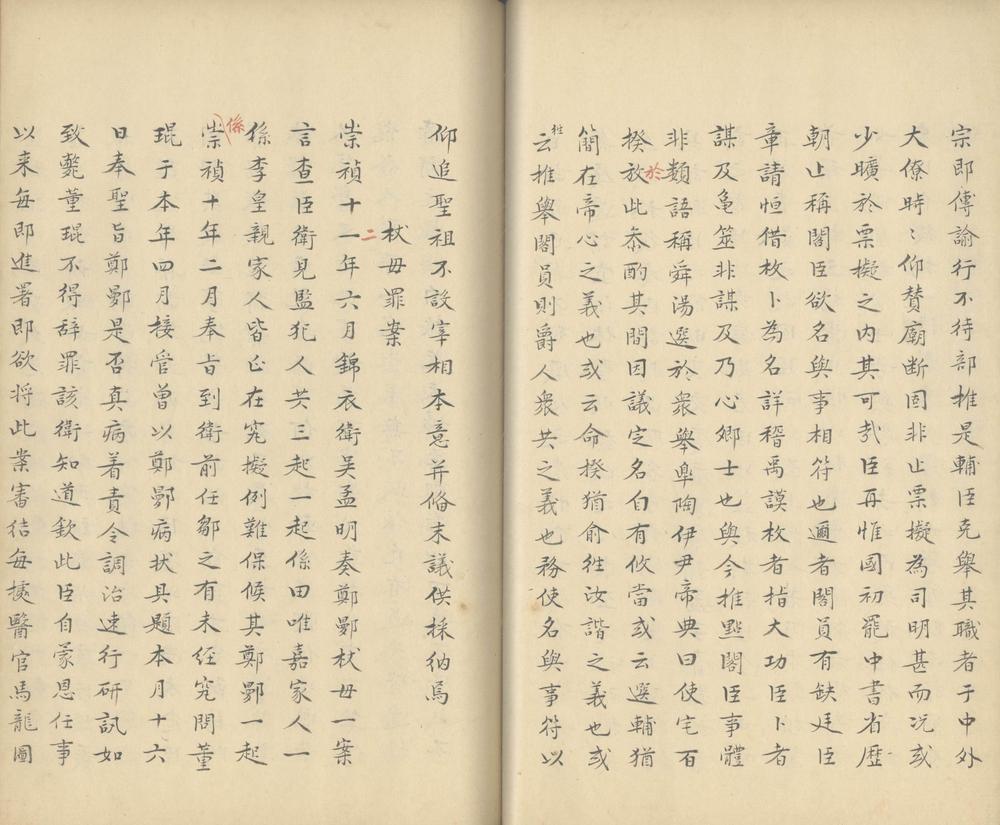 宗即傳諭行不待部推是輔臣克舉其職者于中外
大僚時〻仰賛廟断固非止票擬為司明甚而况或
少曠於票擬之内其可㢤臣再惟國初罷中書省歴
朝止稱閣臣欲名與事相符也邇者閣員有缺廷臣
章請恒借枚卜為名詳稽禹謨枚者指大功臣卜者
謀及龜筮非謀及乃心鄉士也與今推㸃閣臣事體
非類語稱舜湯選於衆舉臯陶伊尹帝典曰使宅百
揆放於此叅酌其間因議定名自有攸當或云選輔猶
簡在帝心之義也或云命揆猶俞徃汝諧之義也或
云推推舉閣員則爵人衆共之義也務使名與事符以
仰追聖祖不設宰相本意并俻末議供採納焉
二杖母罪案
崇禎十一年六月錦衣衛吴孟明奏鄭鄤杖母一案
言查臣衛見監犯人共三起一起係田唯嘉家人一
係李皇親家人皆止在究擬例難保候其鄭鄤一起
係崇禎十年二月奉旨到衛前任鄒之有未經究問董
琨于本年四月接管曾以鄭鄤病状具題本月十六
日奉聖旨鄭鄤是否真病着責令調治速行研訊如
致斃董琨不得辞罪該衛知道欽此臣自蒙恩任事
以来每即進署即欲将此業審结每據醫官馬龍圖